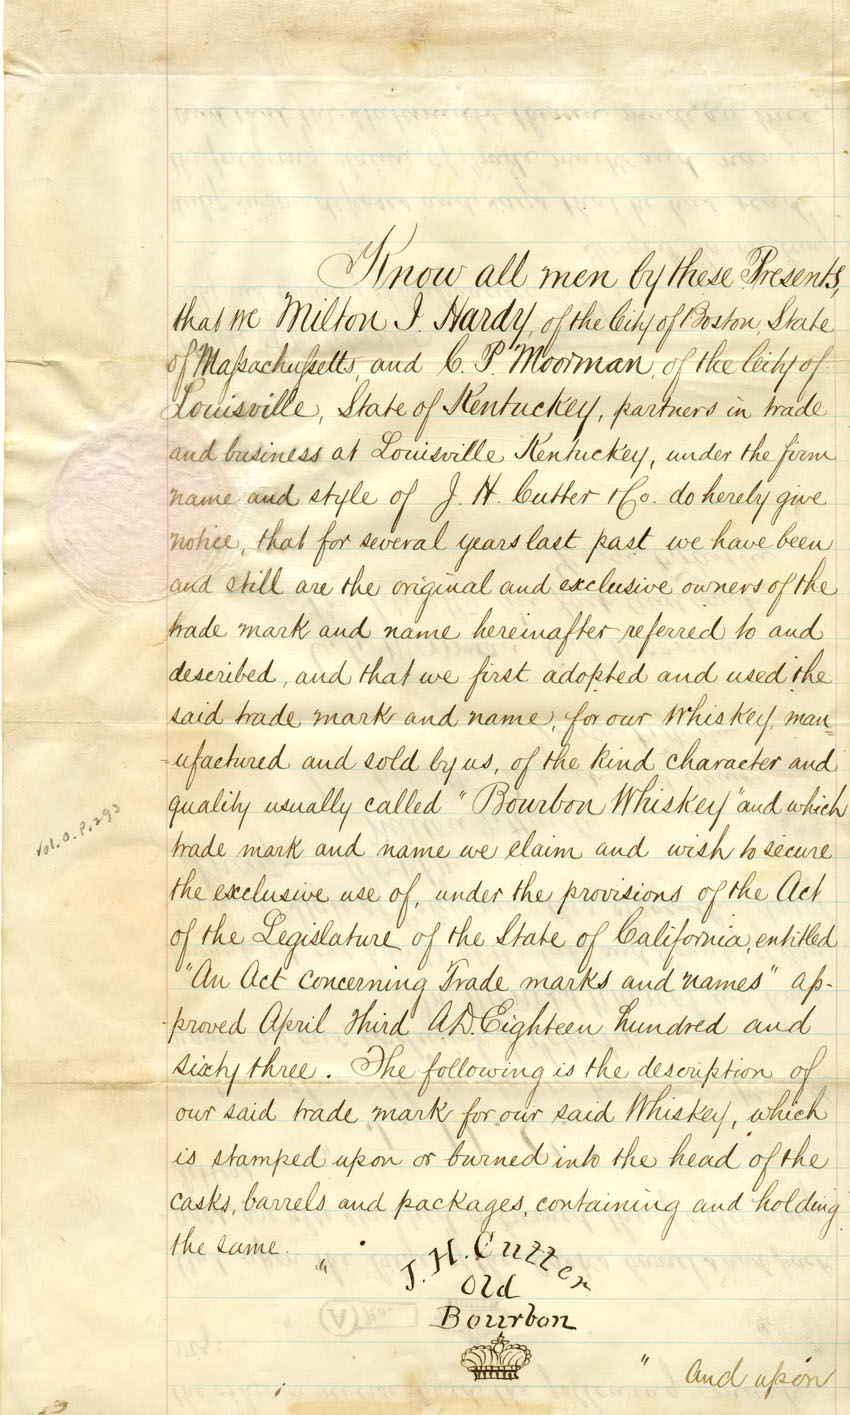 Know all men by these Presents,
that we Milton J. Hardy, of the City of Boston, State
of Massachussetts, and C. P. Moorman, of the City of
Louisville, State of Kentuckey, partners in trade
and business at Louisville Kentuckey, under the firm
name and style of J. H. Cutter & Co. do hereby give
notice, that for several years last past we have been
and still are the original and exclusive owners of the
trade mark and name hereinafter referred to and
described, and that we first adopted and used the
said trade mark and name, for our Whiskey, man=
=ufactured and sold by us, of the kind character and
quality usually called "Bourbon Whiskey" and which
trade mark and name we claim and wish to secure
the exclusive use of, under the provisions of the Act
of the Legislature of the State of California, entitled
"An Act concerning Trade marks and names" ap-
-proved April third A.D. Eighteen hundred and
sixty three. The following is the description of
our said trade mark for our said Whiskey, which
is stamped upon or burned into the head of the
casks, barrels and packages, containing and holding
the same. "
J. H. Cutter
Old
Bourbon
" and upon
Vol. O. P. 293